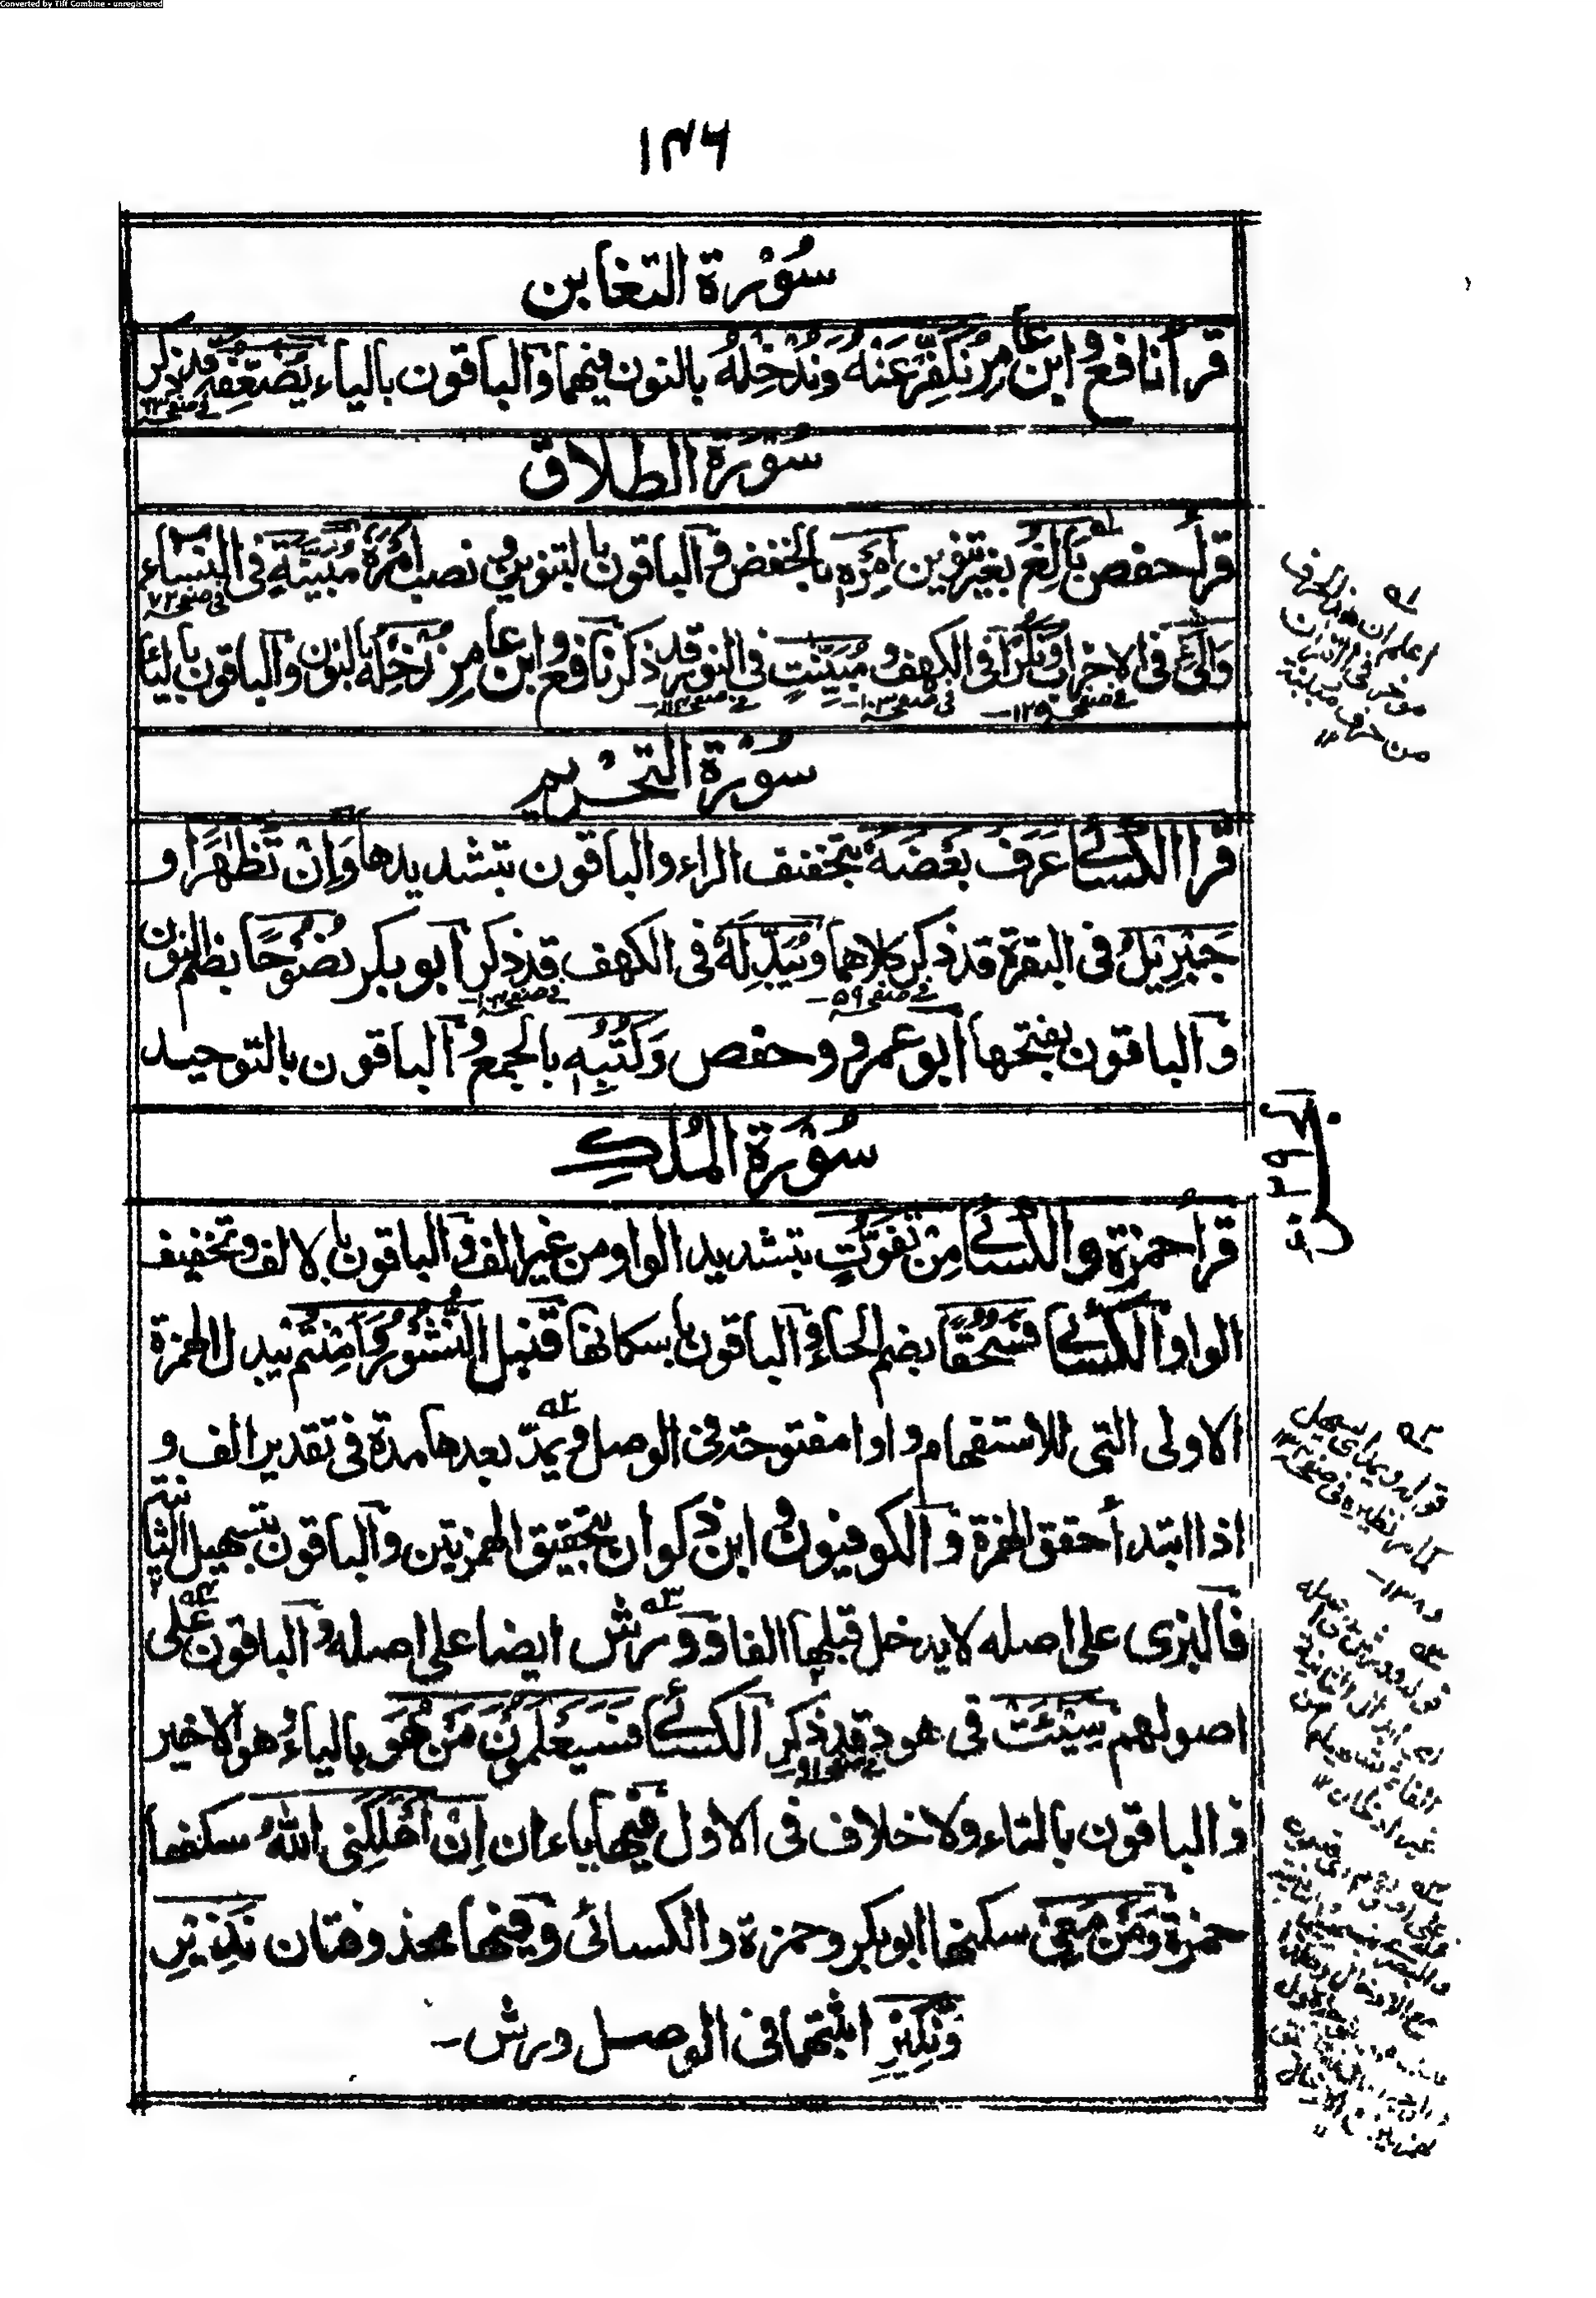 Converted by Tiff Combine - unregistered
١٣٦
سُوْرَة التغابن
قرأ نافع وابن عامر نُكَفِّرْ عَنْهُ وَنُدْخِلْهُ بالنون فيهما والباقون بالياء يُضٰعِفْهُ قد ذكر
سُوْرَة الطلاق
قرأ حفص بَالِغُ بغير تنوين اَمْرِهٖ بالخفض والباقون بالتنوين ونصب اَمْرَهٗ مُّبَيِّنَةٍ فى النساء
فى صفحه ٧٢
وَالّٰۤئِى فى الاحزاب وَنُكْرًا فى الكهف ومُبَيِّنٰتٍ فى النور قد ذكر نافع وابن عامر نُدْخِلْهُ بالنون والباقون بالياء
فى صفحه ١٢٥ فى صفحه ١٠٣
سُوْرَة التحْريم
قرأ الكسائى عَرَفَ بَعْضَهٗ بتخفيف الراء والباقون بتشديدها وَاِنْ تَظٰهَرَا و
جَبْرِيْلُ فى البقرة قد ذكر كلاهما ويُبَدِّلَهٗ فى الكهف قد ذكر ابو بكر نُصُوْحًا بضم النون
فى صفحه ٥٩-
والباقون بفتحها ابو عمرو وحفص وَكُتُبِهٖ بالجمع والباقون بالتوحيد
سُوْرَة المُلك
قرأ حمزة والكسائى مِنْ تَفَوُّتٍ بتشديد الواو من غير الف والباقون بالالف وتخفيف
الواو الكسائى فَسُحُقًا بضم الحاء والباقون باسكانها قنبل النُّشُوْرُ وَاَمِنْتُمْ يبدل الهمزة
الاولى التى للاستفهام واوا مفتوحة فى الوصل ويمدّ بعدها مدة فى تقدير الف و
اذا ابتدأ حقق الهمزة والكوفيون وابن ذكوان بتحقيق الهمزتين والباقون بتسهيل الثانية
فالبزى على اصله لا يدخل قبلها الفا وورش ايضا على اصله والباقون على
اصولهم سِيْٓئَتْ فى هود قد ذكر الكسائى فَسَيَعْلَمُوْنَ مَنْ هُوَ بالياء وهو الاخير
والباقون بالتاء ولا خلاف فى الاول فيها ياءان اِنْ اَهْلَكَنِىَ اللهُ سكنها
حمزة وَمَنْ مَّعِىَ سكنها ابو بكر وحمزة والكسائى وفيها محذوفتان نَذِيْرِ
وَنَكِيْرِ اثبتهما فى الوصل ورش-
اعلم ان هذا الحرف
موخر فى القرآن
من حرف مبينة